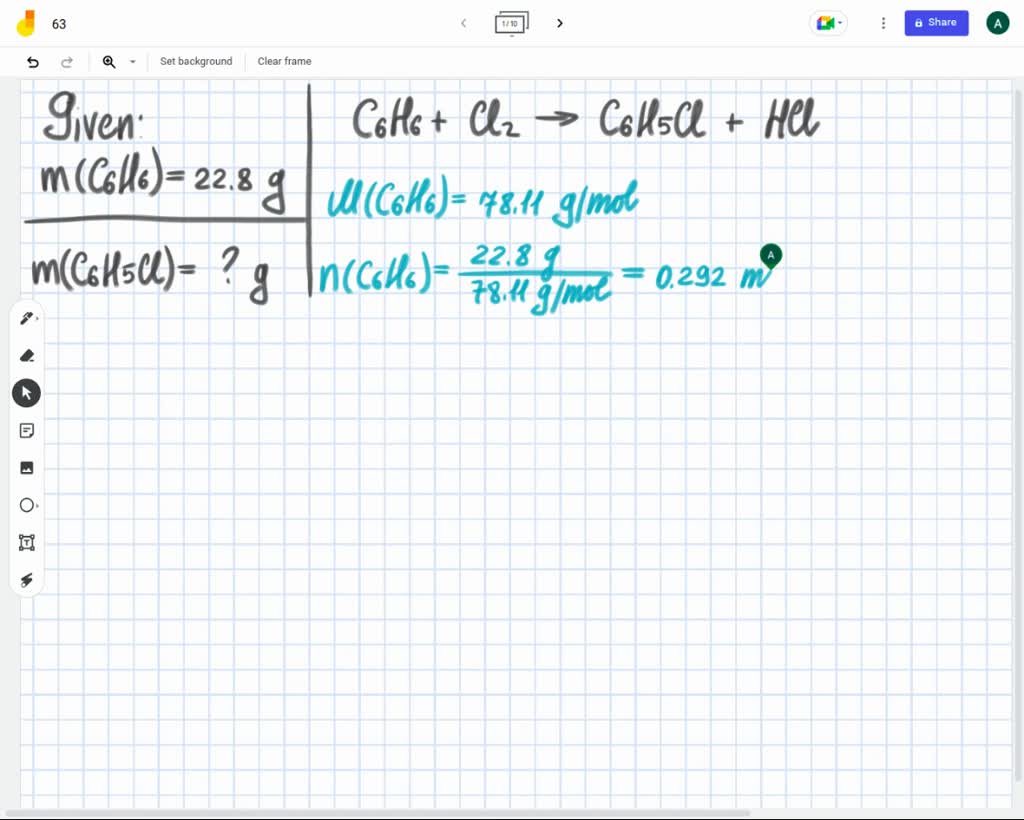 63
1/10
Share
A
Set background
Clear frame
Given:
m(C6H6)= 22.8 g
m(C6H5Cl)= ? g
C6H6 + Cl2 → C6H5Cl + HCl
M(C6H6)= 78.11 g/mol
n(C6H6)= 22.8 g / 78.11 g/mol = 0.292 m
A
T